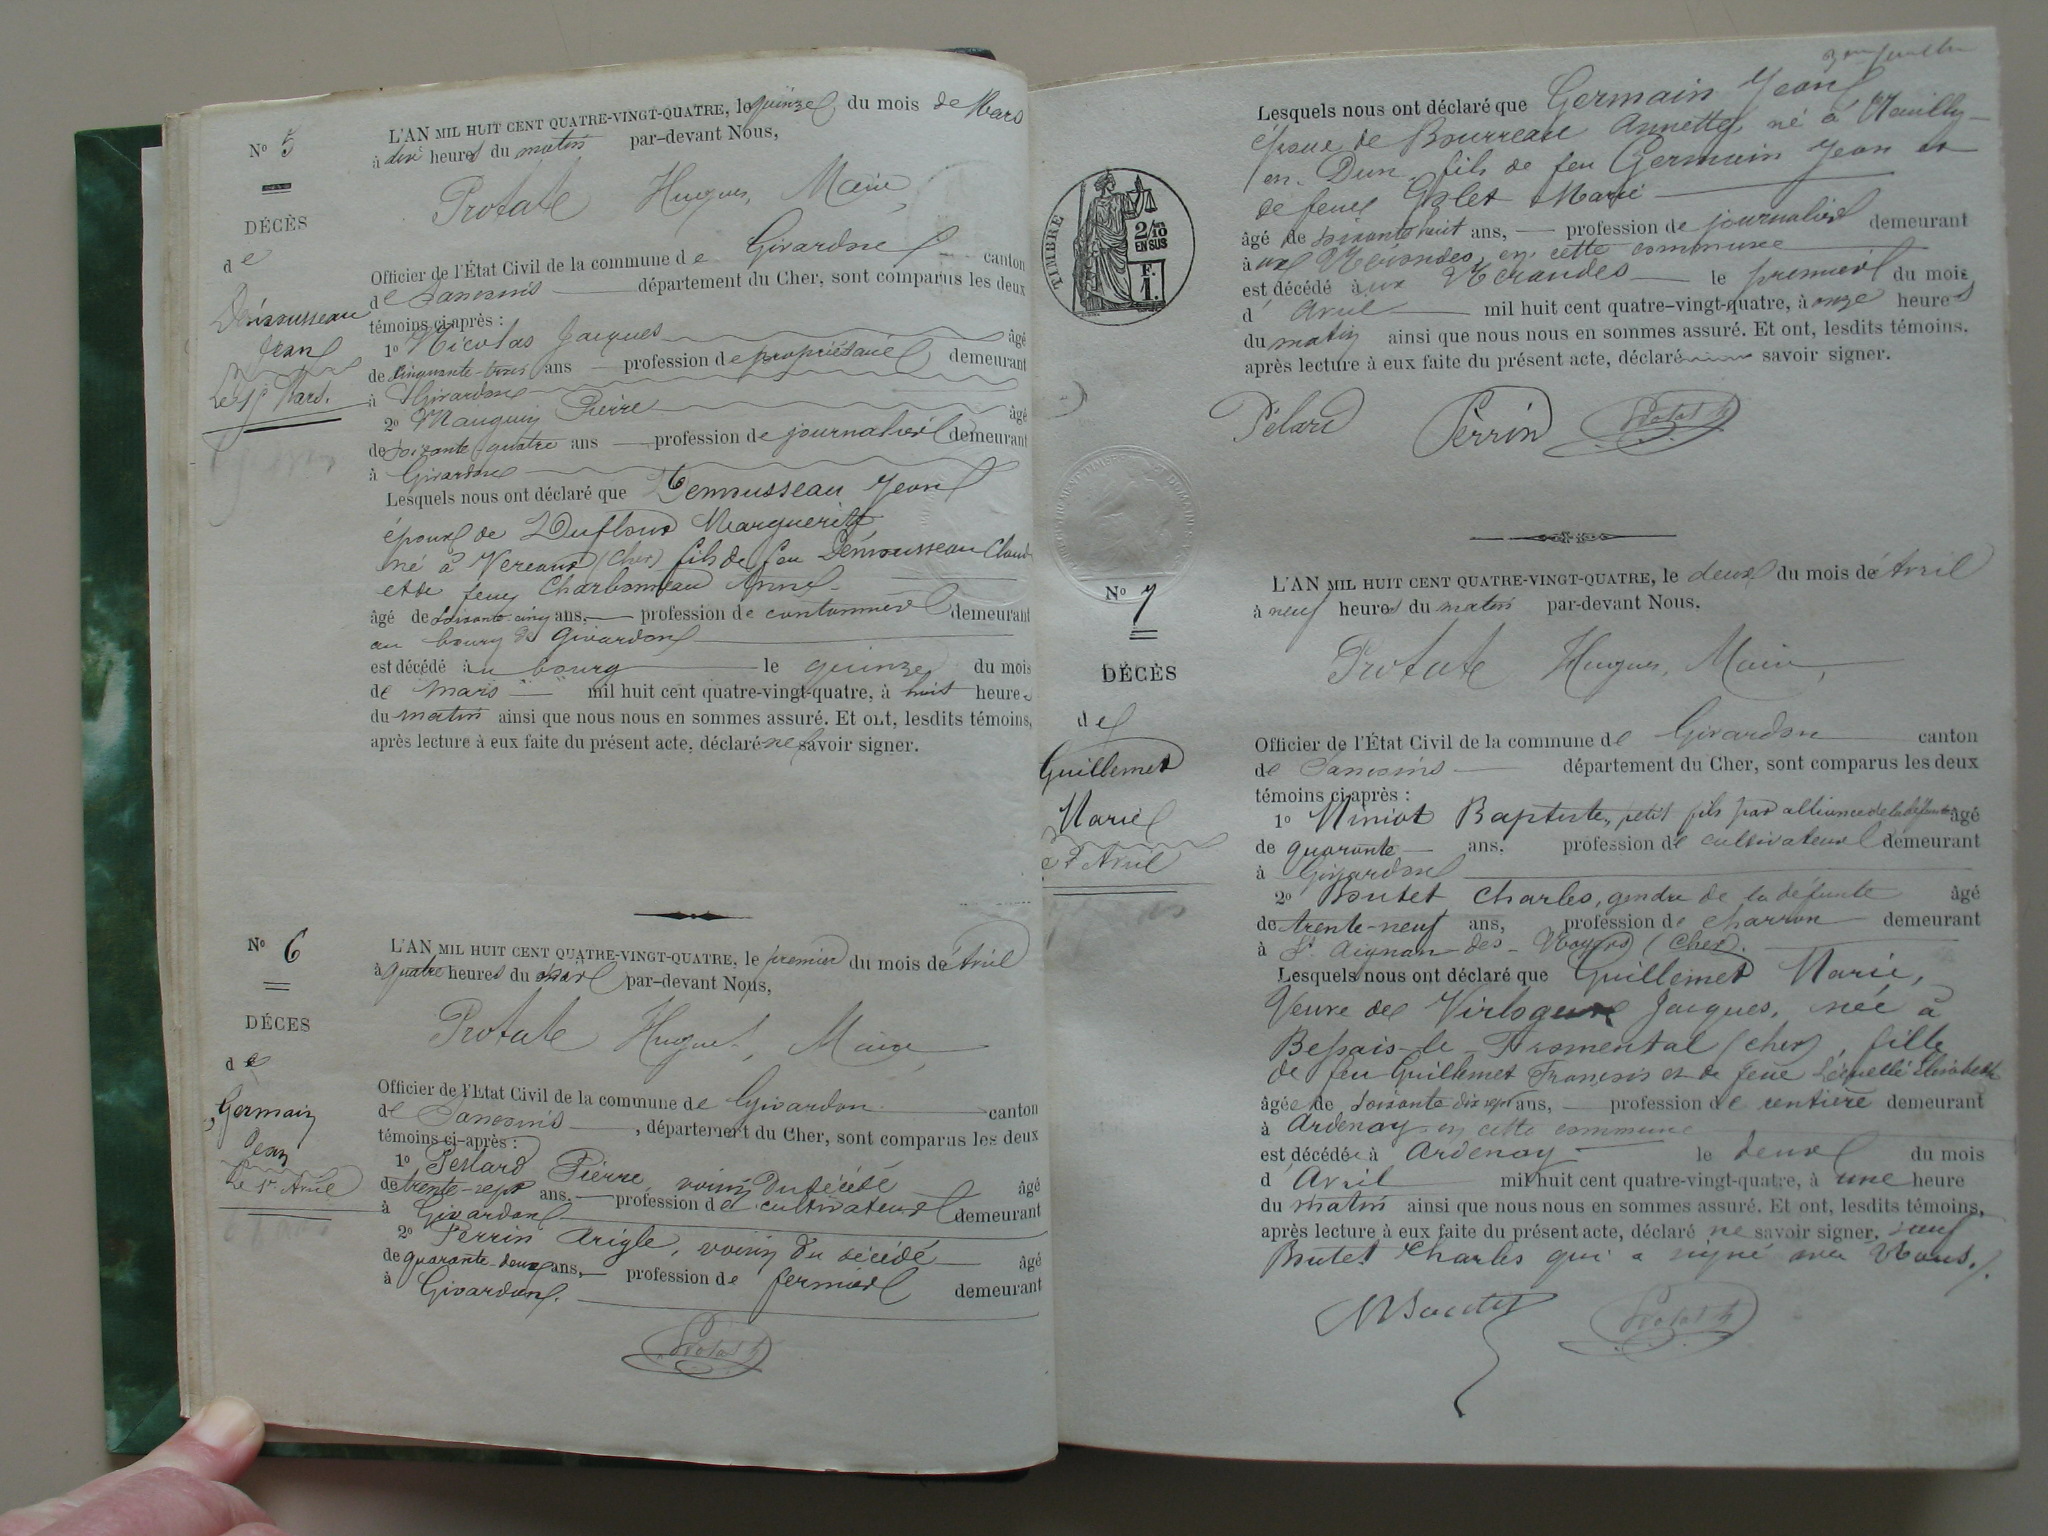 N° 5
DÉCÈS
de
Démousseau
Jean
Le 15 Mars.
L'AN MIL HUIT CENT QUATRE-VINGT-QUATRE, le quinze du mois de Mars
à dix heures du matin par-devant Nous,
Protat Hugues, Maire,
Officier de l'État Civil de la commune de Givardon canton
de Sancoins département du Cher, sont comparus les deux
témoins ci-après :
1° Nicolas Jacques âgé
de cinquante-trois ans profession de propriétaire demeurant
à Givardon
2° Mauguin Pierre âgé
de soixante-quatre ans profession de journalier demeurant
à Givardon
Lesquels nous ont déclaré que Demousseau Jean
époux de Duflout Marguerite
né à Vereaux (Cher) fils de feu Démousseau Claude
et de feue Charbonneau Anne
âgé de soixante-cinq ans, profession de cantonnier demeurant
au bourg de Givardon
est décédé au bourg le quinze du mois
de mars mil huit cent quatre-vingt-quatre, à huit heures
du matin ainsi que nous nous en sommes assuré. Et ont, lesdits témoins,
après lecture à eux faite du présent acte, déclaré ne savoir signer.
N° 6
DÉCES
de
Germain
Jean
Le 1er Avril
L'AN MIL HUIT CENT QUATRE-VINGT-QUATRE, le premier du mois de Avril
à quatre heures du soir par-devant Nous,
Protat Hugues, Maire
Officier de l'Etat Civil de la commune de Givardon canton
de Sancoins, département du Cher, sont comparus les deux
témoins ci-après :
1° Pélard Pierre, voisin du décédé âgé
de trente-sept ans, profession de cultivateur demeurant
à Givardon
2° Perrin Arigle, voisin du décédé âgé
de quarante-deux ans, profession de fermier demeurant
à Givardon.
Protat h
3me feuillet
Lesquels nous ont déclaré que Germain Jean
époux de Bourreau Annette, né à Neuilly-
en-Dun, fils de feu Germain Jean et
de feue Marie
âgé de soixante huit ans, profession de journalier demeurant
à aux Mérandes, en cette commune
est décédé aux Mérandes le premier du mois
d'Avril mil huit cent quatre-vingt-quatre, à onze heures
du matin ainsi que nous nous en sommes assuré. Et ont, lesdits témoins,
après lecture à eux faite du présent acte, déclaré savoir signer.
Pélard Perrin Protat h
TIMBRE
2/10
EN SUS
F.
1.
N° 7
DÉCÈS
de
Guillemet
Marie
2 Avril
L'AN MIL HUIT CENT QUATRE-VINGT-QUATRE, le deux du mois de Avril
à neuf heures du matin par-devant Nous,
Protat Hugues, Maire,
Officier de l'État Civil de la commune de Givardon canton
de Sancoins département du Cher, sont comparus les deux
témoins ci-après :
1° Miniot Baptiste, petit fils par alliance de la défunte âgé
de quarante ans, profession de cultivateur demeurant
à Givardon
2° Boutet Charles, gendre de la défunte âgé
de trente-neuf ans, profession de charron demeurant
à St Aignan-des-Noyers (Cher).
Lesquels nous ont déclaré que Guillemet Marie,
Veuve de Virlogeux Jacques, née à
Bessais-le-Fromental (Cher), fille
de feu Guillemet François et de feue Elisabeth
âgée de soixante dix sept ans, profession de rentière demeurant
à Ardenay en cette commune
est décédée à Ardenay le deux du mois
d'Avril mil huit cent quatre-vingt-quatre, à une heure
du matin ainsi que nous nous en sommes assuré. Et ont, lesdits témoins,
après lecture à eux faite du présent acte, déclaré ne savoir signer, sauf
Boutet Charles qui a signé avec Nous.
Boutet Protat h